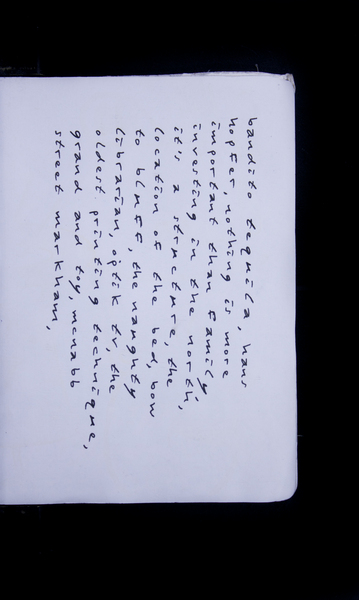 bandito tequila, hans
hopfer, nothing is more
important than family,
investing in the north,
it's a structure, the
location of the bed, bow
to bluff, the naughty
librarian, optik tv, the
oldest printing technique,
grand and toy, mcnabb
street markham,